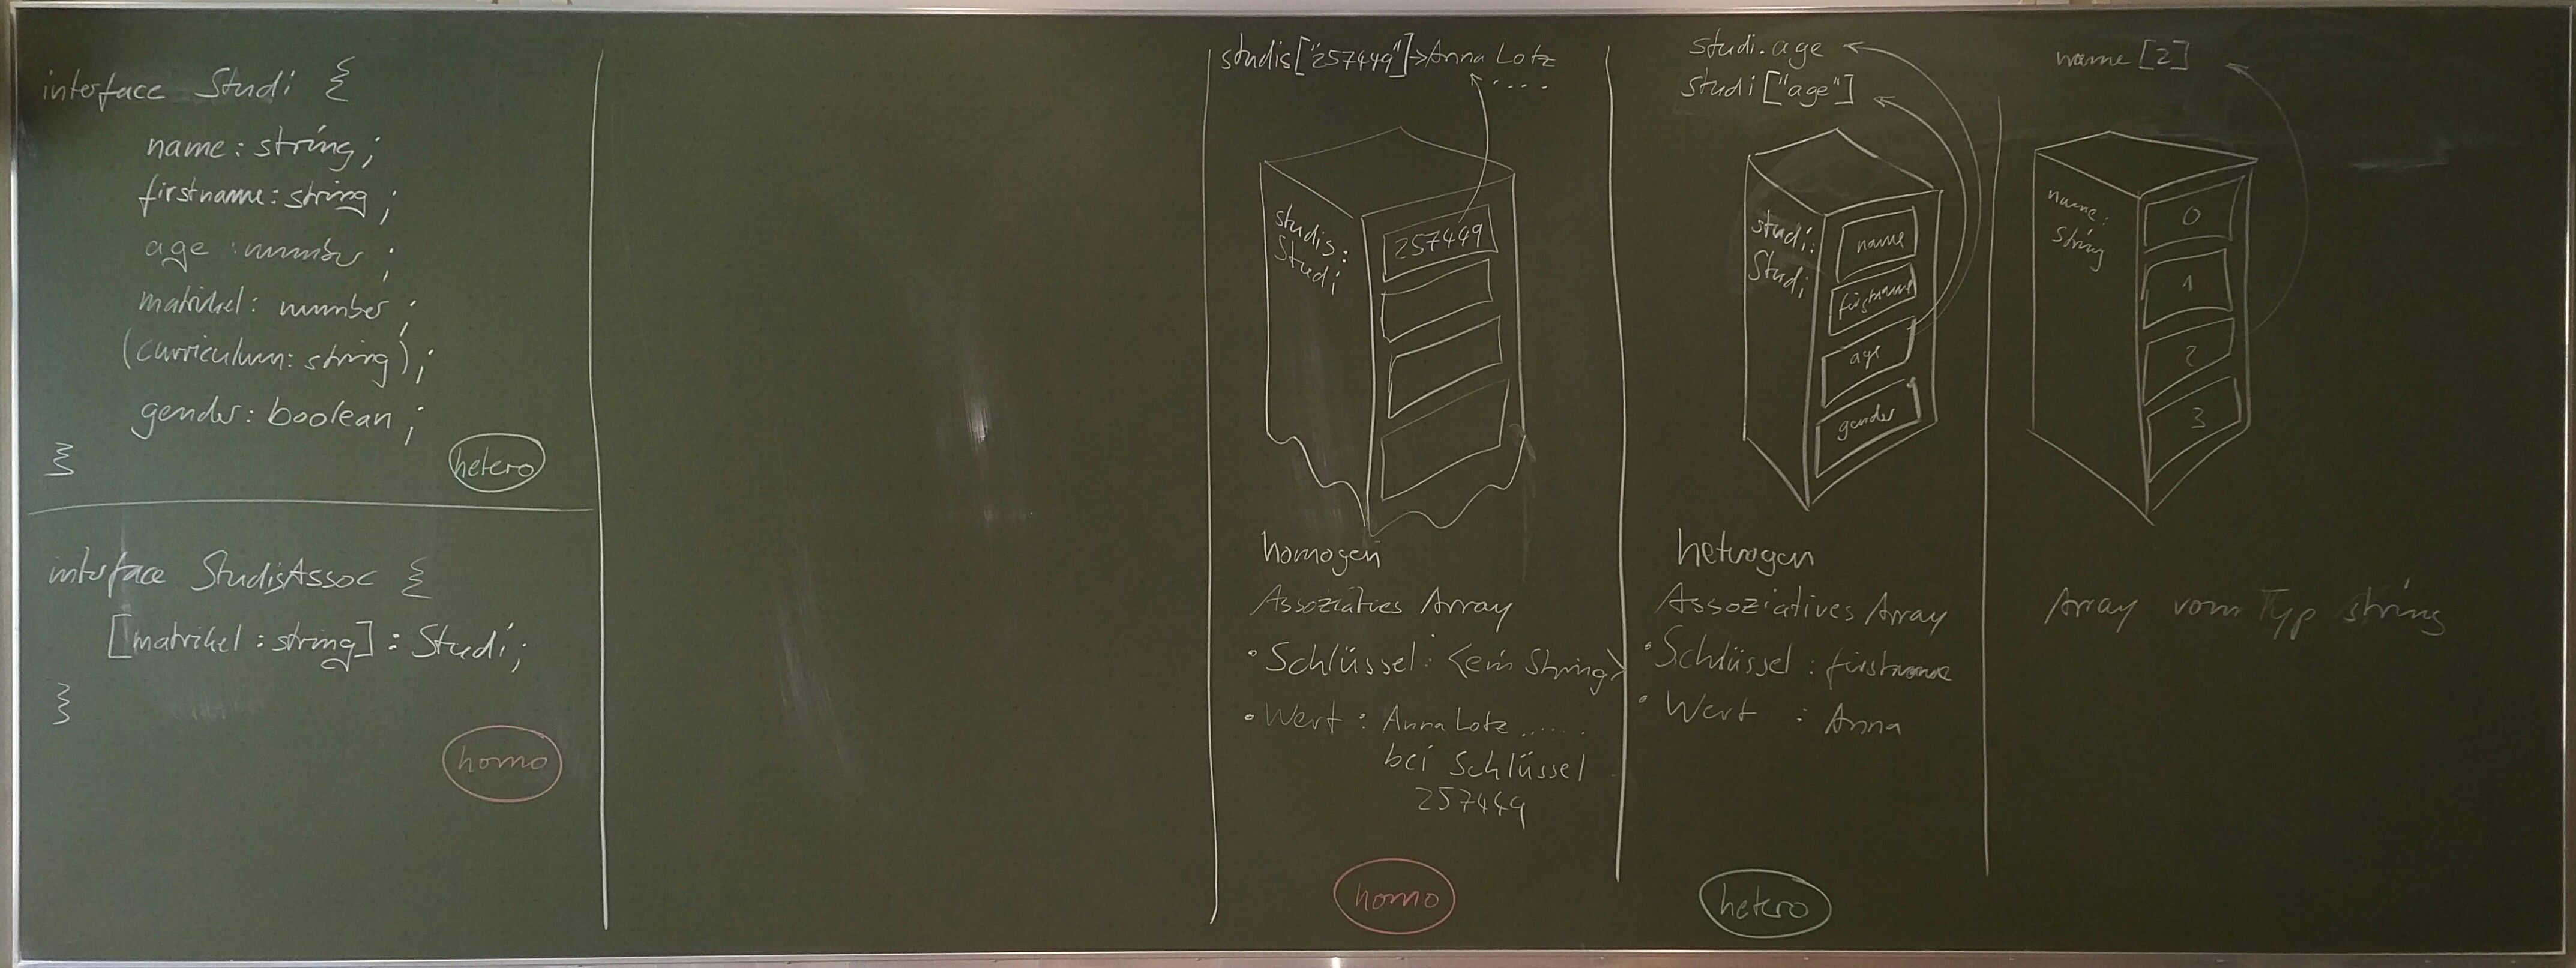 interface Studi {
name: string;
firstname: string;
age: number;
matrikel: number;
(curriculum: string);
gender: boolean;
}
hetero
interface StudisAssoc {
[matrikel: string]: Studi;
}
homo
studis["257449"]→Anna Lotz
....
studis:
Studi
257449
homogen
Assoziatives Array
• Schlüssel: <ein String>
• Wert: Anna Lotz ......
bei Schlüssel
257449
homo
studi.age
studi["age"]
studi:
Studi
name
firstname
age
gender
heterogen
Assoziatives Array
• Schlüssel: firstname
• Wert: Anna
hetero
name[2]
name:
string
0
1
2
3
Array vom Typ string